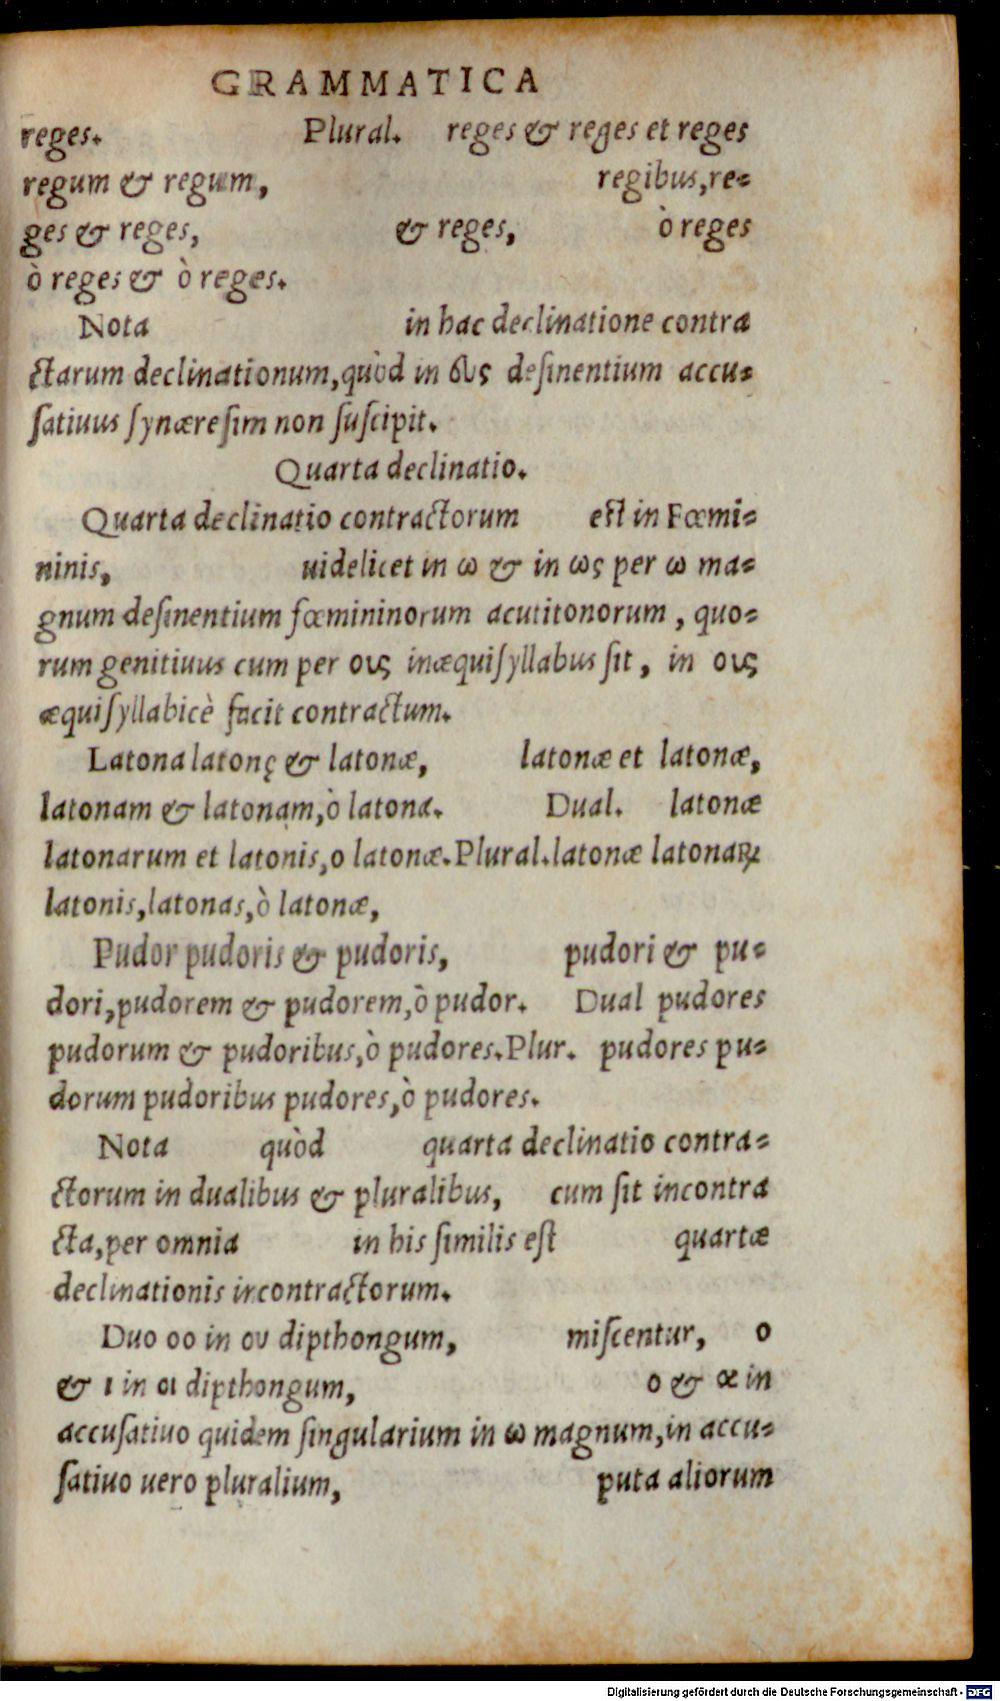 GRAMMATICA
reges. Plural. reges & reges et reges
regum & regum, regibus, re-
ges & reges, & reges, ò reges
ò reges & ò reges.
Nota in hac declinatione contra
ctarum declinationum, quòd in ευς desinentium accu-
satiuus synæresim non suscipit.
Quarta declinatio.
Quarta declinatio contractorum est in Fœmi-
ninis, uidelicet in ω & in ως per ω ma-
gnum desinentium fœmininorum acutitonorum, quo-
rum genitiuus cum per ους inæquisyllabus sit, in ους
æquisyllabicè facit contractum.
Latona latonę & latonæ, latonæ et latonæ,
latonam & latonam, ò latona. Dual. latonæ
latonarum et latonis, o latonæ. Plural. latonæ latonaꝝ
latonis, latonas, ò latonæ,
Pudor pudoris & pudoris, pudori & pu-
dori, pudorem & pudorem, ò pudor. Dual pudores
pudorum & pudoribus, ò pudores. Plur. pudores pu-
dorum pudoribus pudores, ò pudores.
Nota quòd quarta declinatio contra-
ctorum in dualibus & pluralibus, cum sit incontra
cta, per omnia in his similis est quartæ
declinationis incontractorum.
Duo oo in ου dipthongum, miscentur, o
& ι in οι dipthongum, o & α in
accusatiuo quidem singularium in ω magnum, in accu-
satiuo uero pluralium, puta aliorum
Digitalisierung gefördert durch die Deutsche Forschungsgemeinschaft - DFG